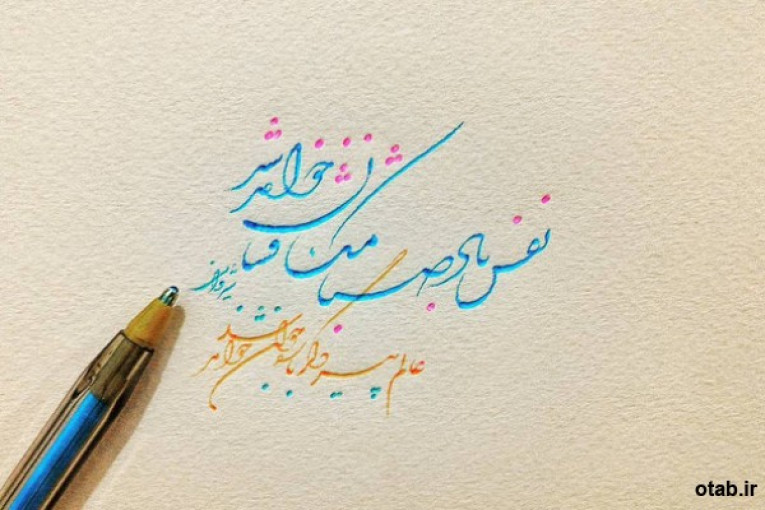 نفس باد صبا مشک فشان خواهد شد
عالم پیر دگر باره جوان خواهد شد
otab.ir